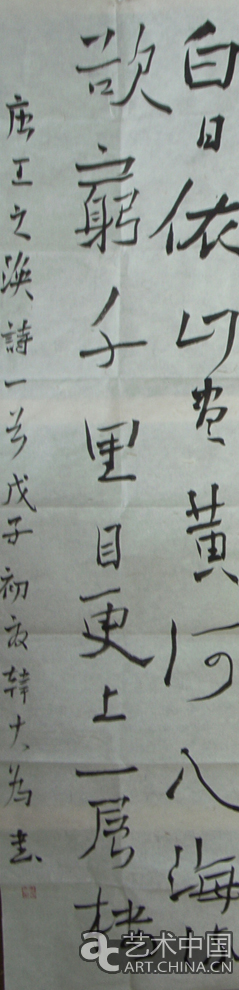 白日依山尽黄河入海流
欲窮千里目更上一層樓
唐王之渙詩一首戊子初夏韓大為书
艺术中国
ART.CHINA.CN